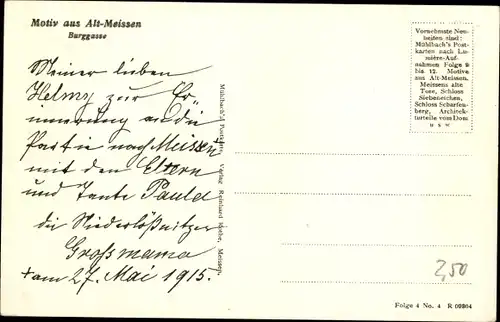 Motiv aus Alt-Meissen
Burggasse
Meiner lieben
Helmy zur Er-
innerung an die
Partie nach Meissen
mit den Eltern
und Tante Paula
die Niederlößnitzer
Grossmama
+ am 27. Mai 1915.
Mühlbach's Postkarten Verlag Reinhard Rothe, Meissen.
Vornehmste Neu-
heiten sind:
Mühlbach's Post-
karten nach Lu-
mière-Auf-
nahmen Folge 9
bis 12. Motive
aus Alt-Meissen,
Meissens alte
Tore, Schloss
Siebeneichen,
Schloss Scharfen-
berg, Architek-
turteile vom Dom
usw
2,50
Folge 4 No. 4 R 09364